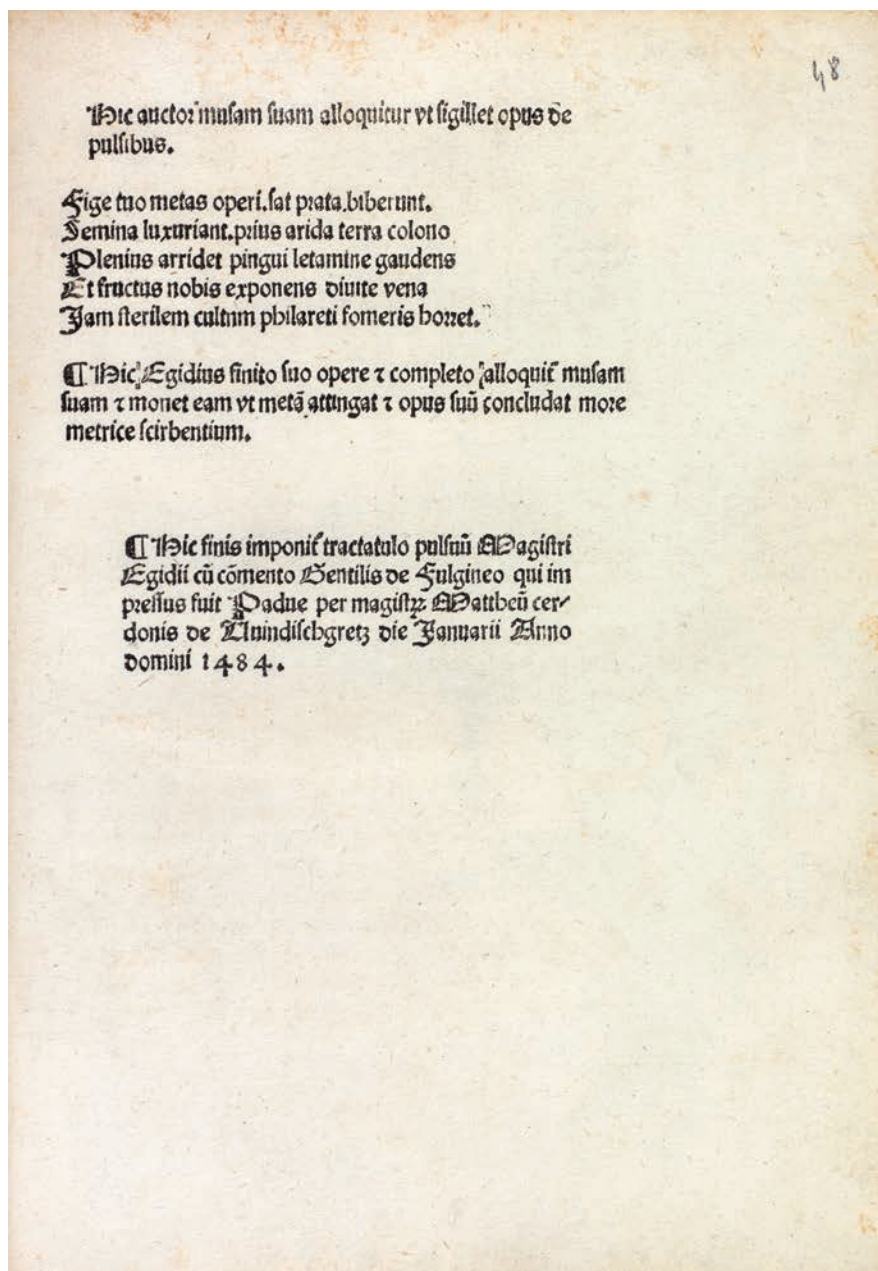 48
Hic auctor musam suam alloquitur vt sigillet opus de
pulsibus.
Fige tuo metas operi.sat prata.biberunt.
Semina luxuriant.prius arida terra colono
Plenius arridet pingui letamine gaudens
Et fructus nobis exponens diuite vena
Jam sterilem cultum philareti fomeris horret.
¶ Hic Egidius finito suo opere ⁊ completo alloquit᷑ musam
suam ⁊ monet eam vt metā attingat ⁊ opus suū concludat more
metrice scirbentium.
¶ Hic finis imponit᷑ tractatulo pulsuū Magistri
Egidii cū cōmento Gentilis de Fulgineo qui im
pressus fuit Padue per magistꝝ Mattheū cer⸗
donis de Uuindischgretz die Januarii Anno
domini 1484.